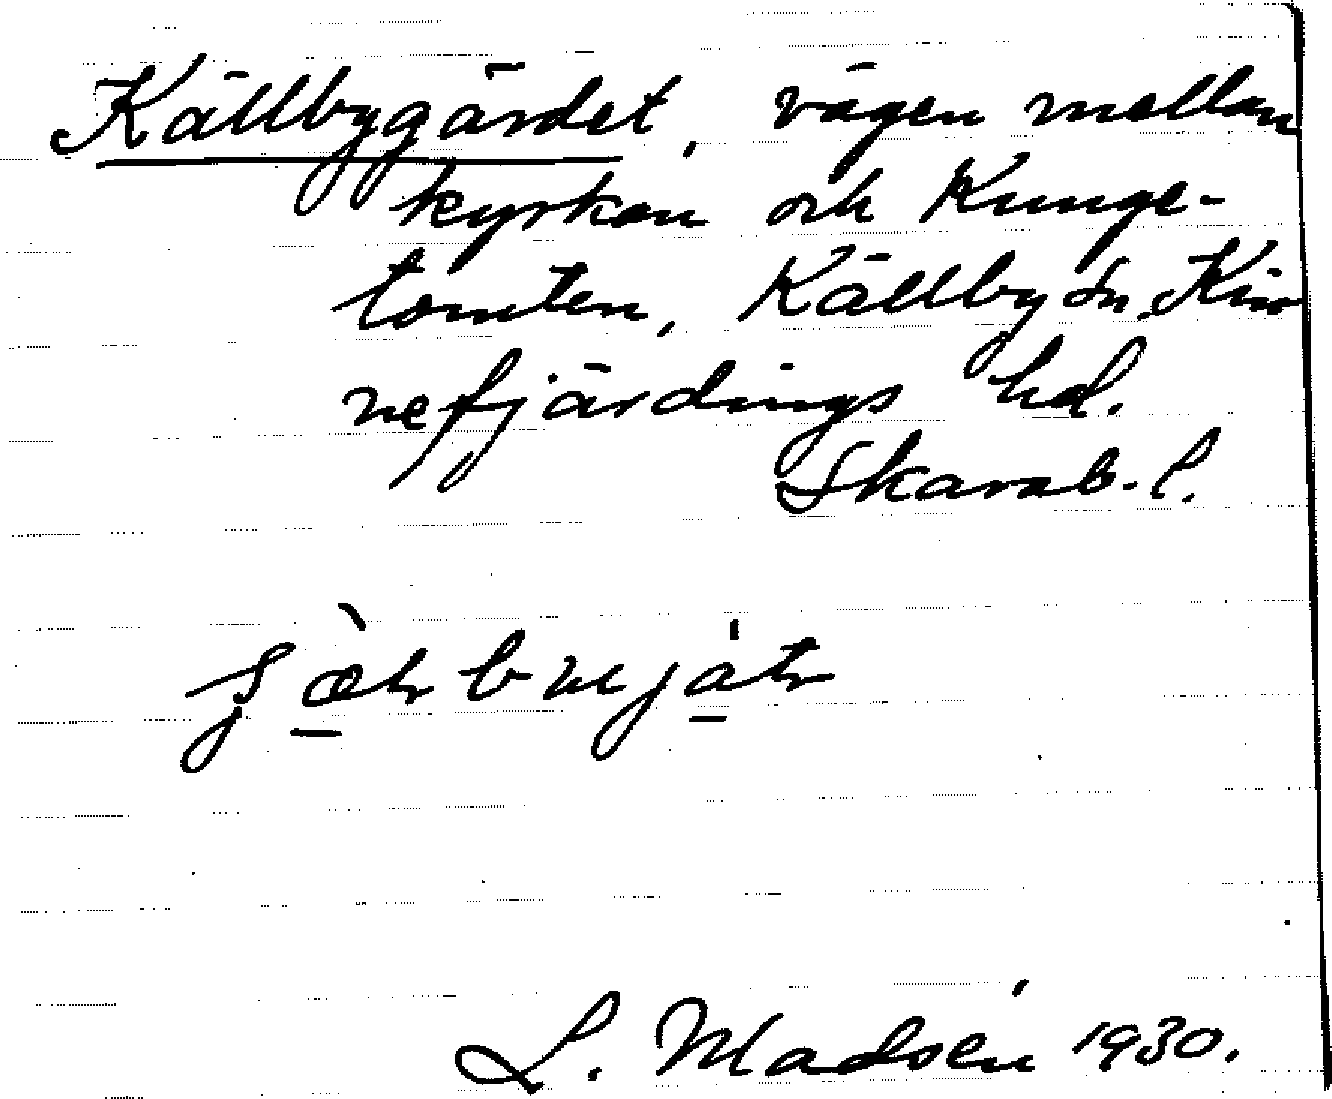 Källbygärdet, vägen mellan
kyrkan och Kunge-
tomten, Källby sn, Kin
nefjärdings hd.
Skarab. l.
L. Madsén 1930.